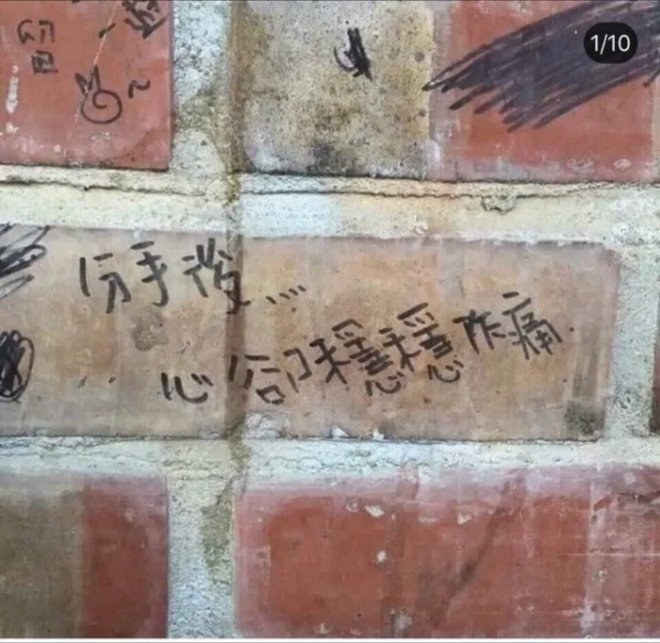 1/10
分手後....
心卻穩穩作痛.